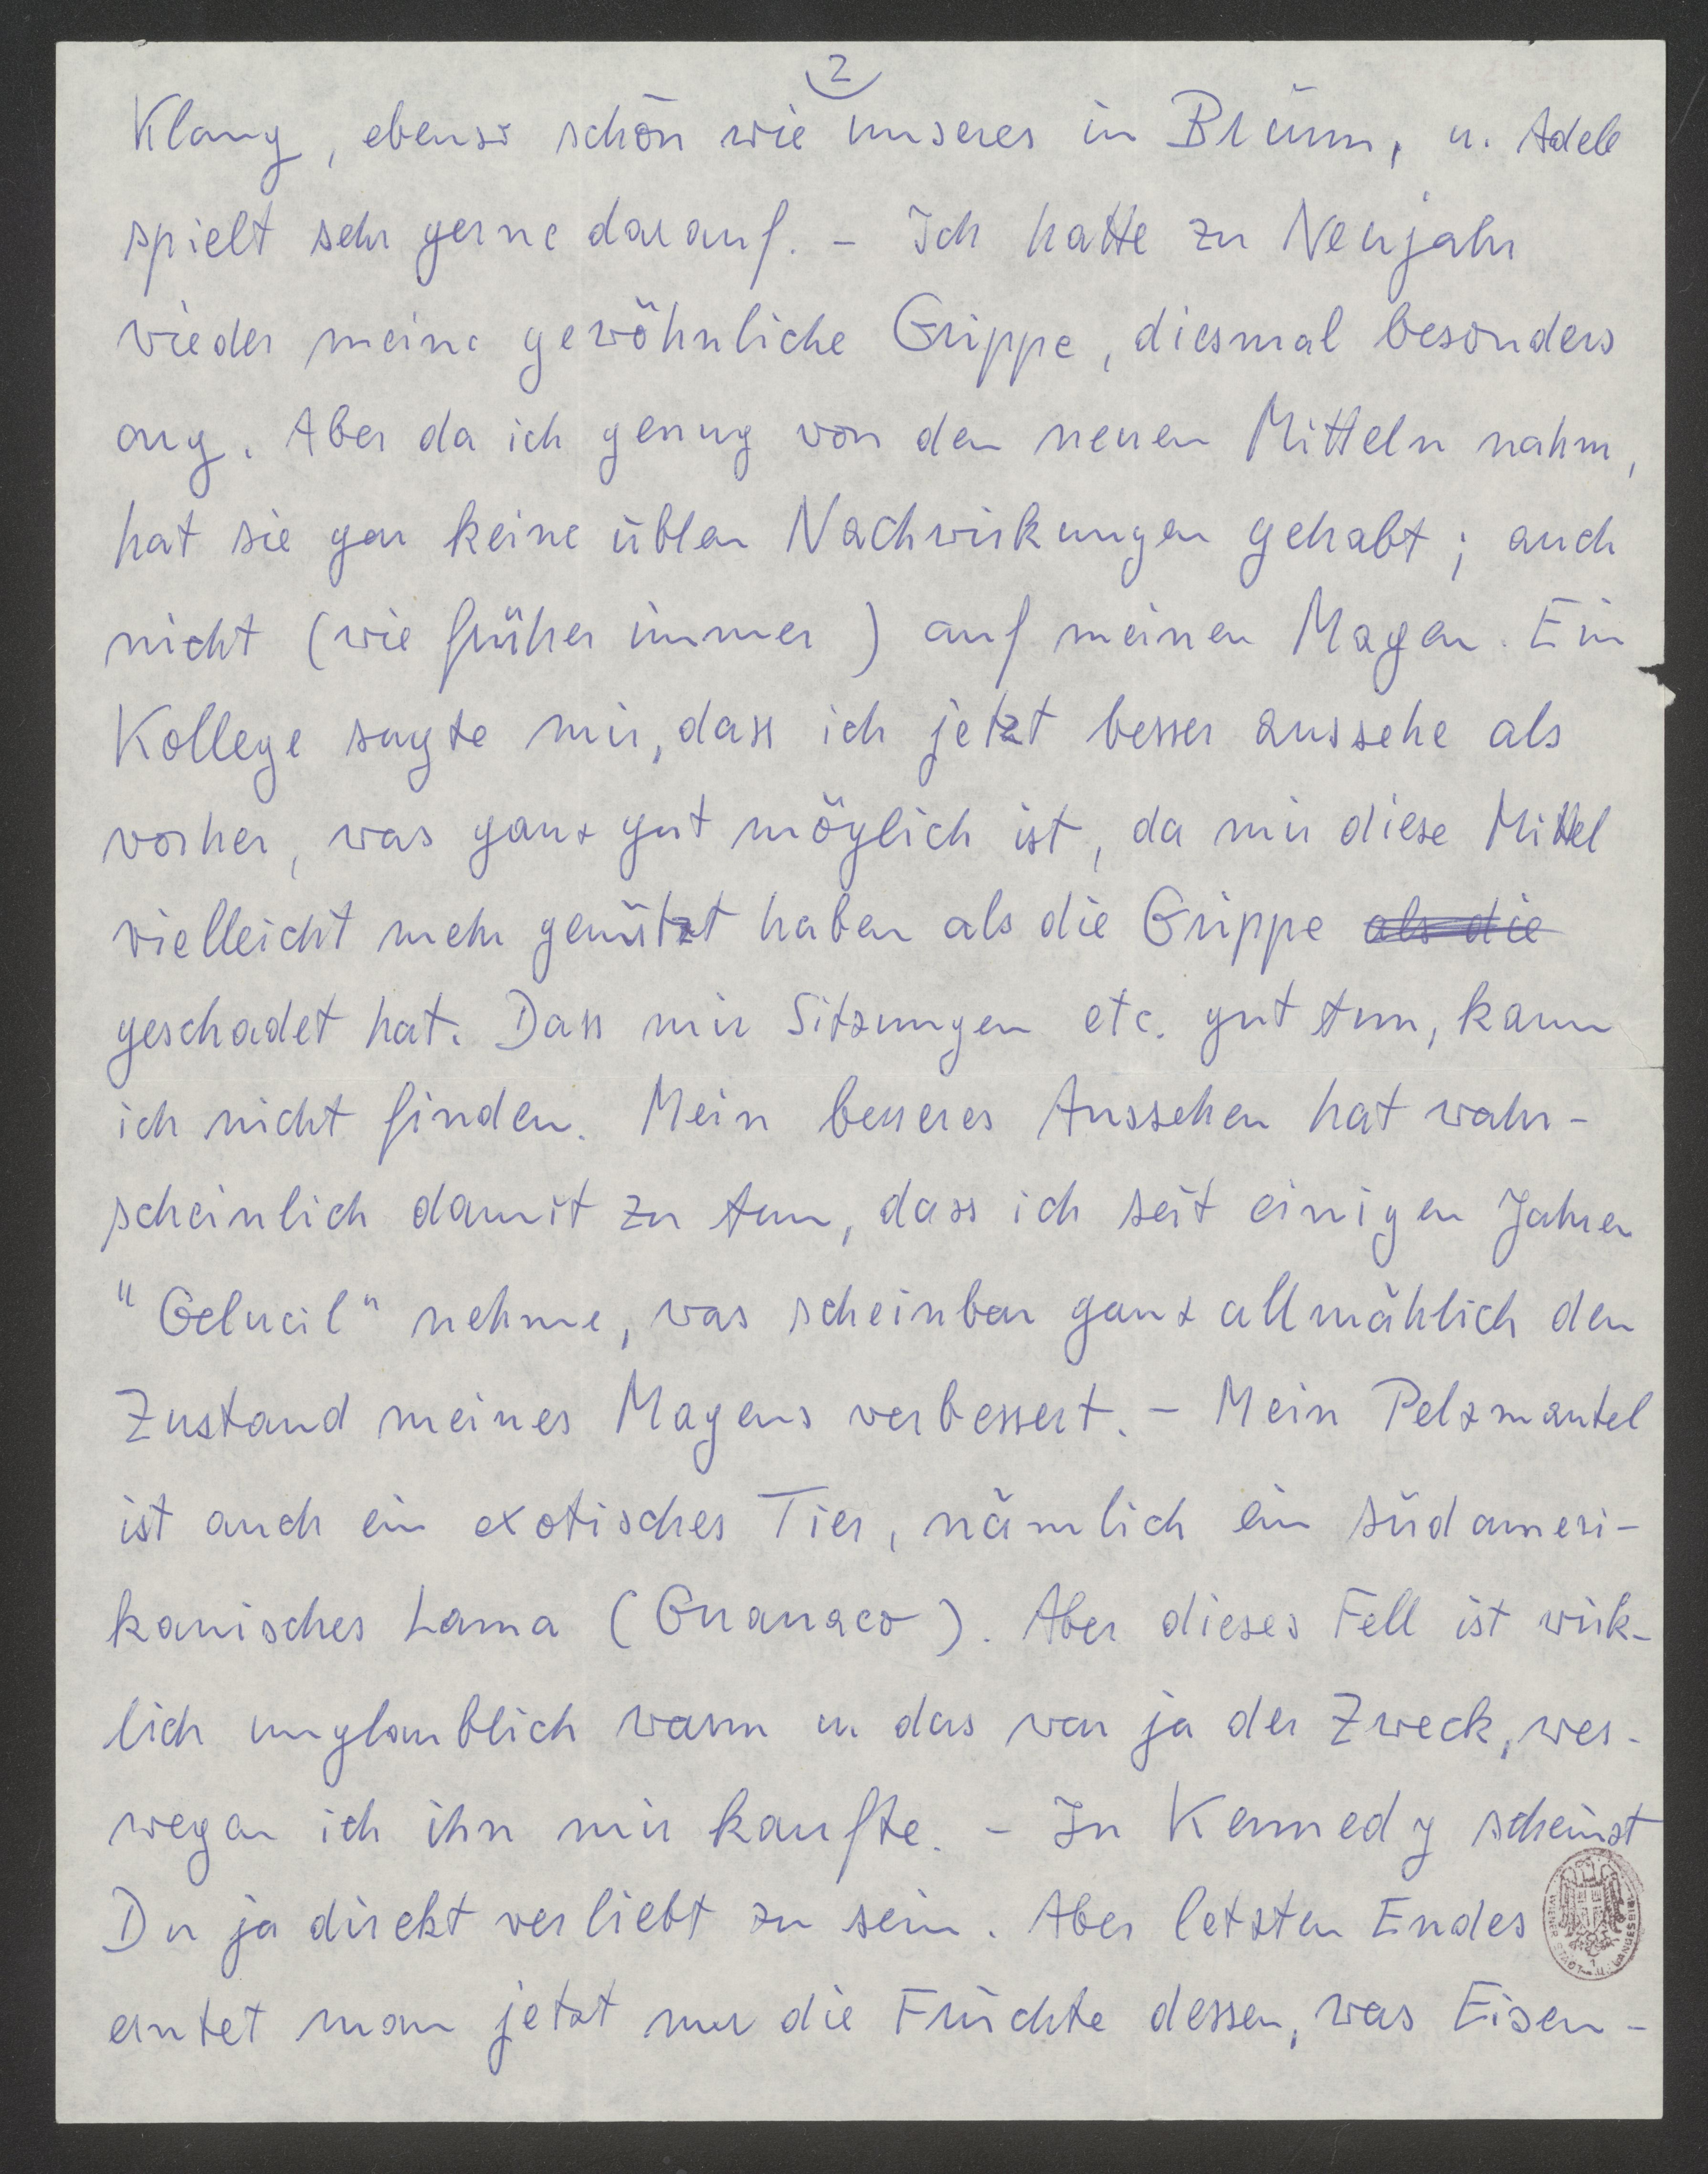 2
Klang, ebenso schön wie unseres in Brünn, u. Adele
spielt sehr gerne darauf. – Ich hatte zu Neujahr
wieder meine gewöhnliche Grippe, diesmal besonders
arg. Aber da ich genug von den neuen Mitteln nahm,
hat sie gar keine üblen Nachwirkungen gehabt; auch
nicht (wie früher immer) auf meinen Magen. Ein
Kollege sagte mir, dass ich jetzt besser aussehe als
vorher, was ganz gut möglich ist, da mir diese Mittel
vielleicht mehr genützt haben als die Grippe als die
geschadet hat. Dass mir Sitzungen etc. gut tun, kann
ich nicht finden. Mein besseres Aussehen hat wahr-
scheinlich damit zu tun, dass ich seit einigen Jahren
"Gelucil" nehme, was scheinbar ganz allmählich den
Zustand meines Magens verbessert. – Mein Pelzmantel
ist auch ein exotisches Tier, nämlich ein südameri-
kanisches Lama (Guanaco). Aber dieses Fell ist wirk-
lich unglaublich warm u. das war ja der Zweck, wes-
wegen ich ihn mir kaufte. – In Kennedy scheinst
Du ja direkt verliebt zu sein. Aber letzten Endes
erntet man jetzt nur die Früchte dessen, was Eisen-
WIENER STADT- U. LANDESBIB.